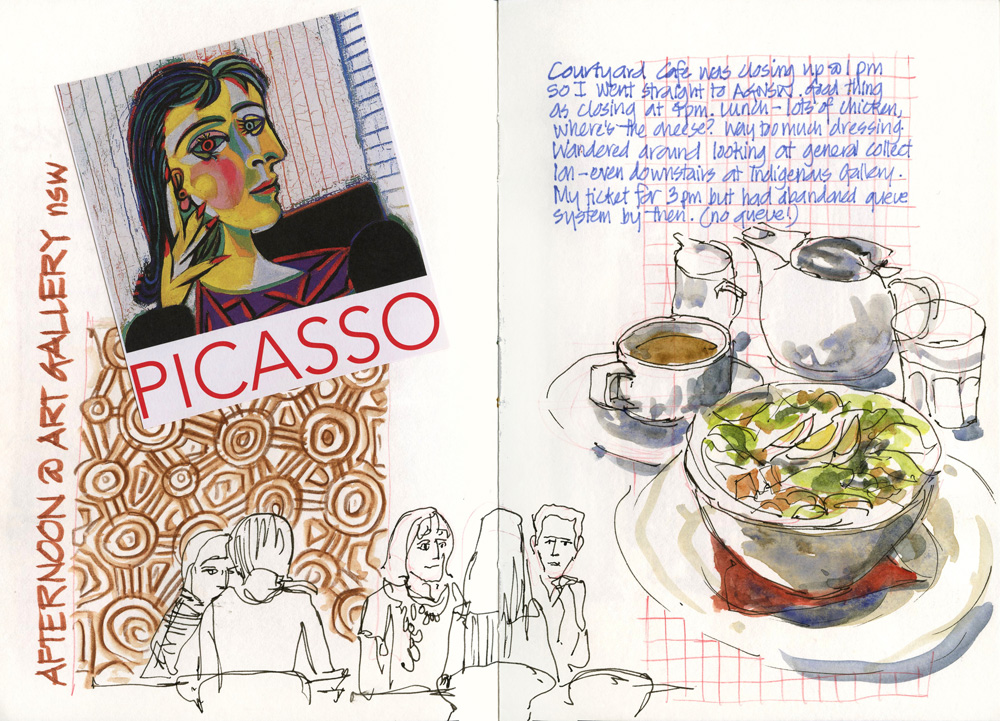 AFTERNOON @ ART GALLERY nsw
PICASSO
Courtyard Cafe was closing up @ 1 pm
so I went straight to AGNSW. Good thing
as closing at 4pm. Lunch - lots of chicken,
where's the cheese? Way too much dressing
Wandered around looking at general collect
ion - even downstairs at Indigenous Gallery.
My ticket for 3pm but had abandoned queue
system by then. (no queue!)